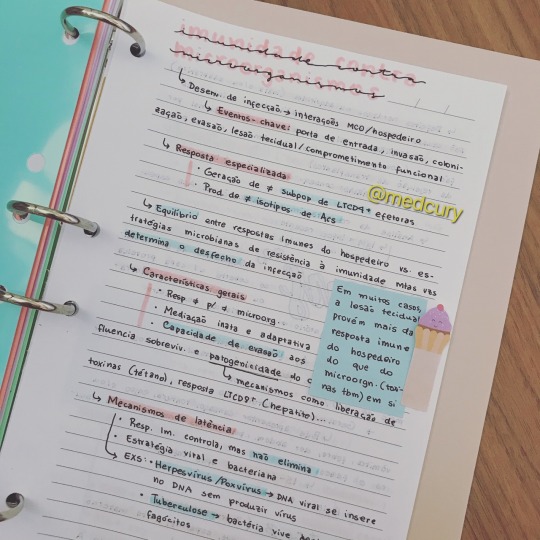 imunidade contra
microorganismos
↳ Desenv. de infecção → interações MCO/hospedeiro
↳ Eventos-chave: porta de entrada, invasão, coloni-
zação, evasão, lesão tecidual/comprometimento funcional
↳ Resposta especializada
· Geração de ≠ subpop de LTCD4+ efetoras
· Prod. de ≠ isotipos de Acs
@medcury
↳ Equilíbrio entre respostas imunes do hospedeiro vs. es-
tratégias microbianas de resistência à imunidade mtas vzs
determina o desfecho da infecção
↳ Características gerais
· Resp ≠ p/ ≠ microorg.
· Mediação inata e adaptativa
· Capacidade de evasão aos
fluencia sobreviv. e patogenicidade do
↳ mecanismos como liberação de
toxinas (tétano), resposta LTCD8+ (hepatite)...
Em muitos casos,
a lesão tecidual
provém mais da
resposta imune
do hospedeiro
do que do
microorgn. (toxi-
nas tbm) em si
↳ Mecanismos de latência
· Resp. Im. controla, mas não elimina
· Estratégia viral e bacteriana
EXS: · Herpesvírus/Poxvírus → DNA viral se insere
no DNA sem produzir vírus
· Tuberculose → bactéria vive
fagócitos